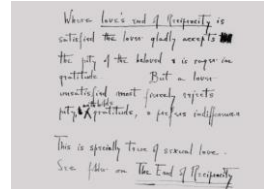 Where love's end of Reciprocity is
satisfied the lover gladly accepts
the pity of the beloved & is
gratitude. But a lover
unsatisfied most fiercely rejects
pity & gratitude, & prefers indifference
This is specially true of sexual love.
See on The End of Reciprocity